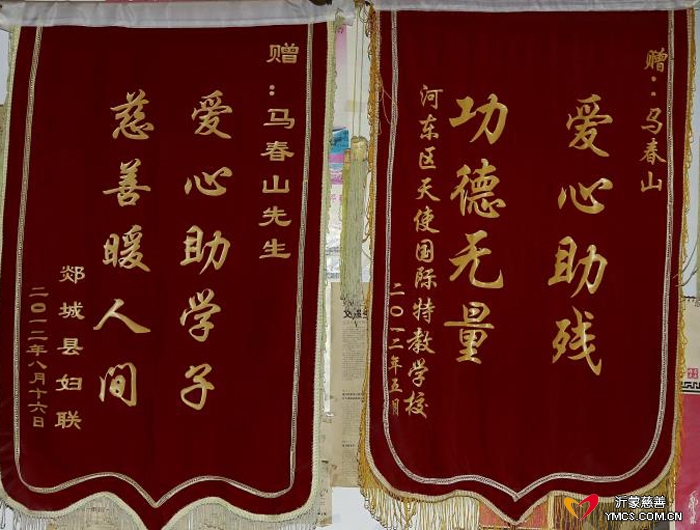 赠：马春山先生
爱心助学子
慈善暖人间
郯城县妇联
二〇一二年八月十六日
赠：马春山
爱心助残
功德无量
河东区天使国际特教学校
二〇一二年五月
沂蒙慈善
YMCS.COM.CN